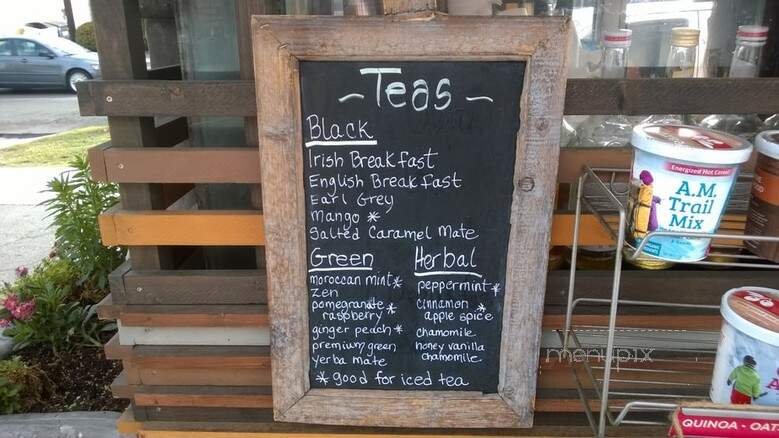 ~ Teas ~
Black
Irish Breakfast
English Breakfast
Earl Grey
Mango *
Salted Caramel Mate
Green
moroccan mint *
zen
pomegranate
raspberry *
ginger peach *
premium green
yerba mate
Herbal
peppermint *
cinnamon
apple spice *
chamomile
honey vanilla
chamomile
* good for iced tea
Energized Hot Cereal
A.M.
Trail
Mix
QUINOA - OAT
menupix